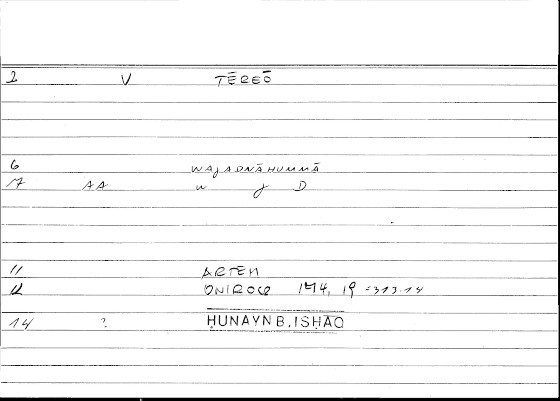 2 V TĒREŌ
6 WAJADNĀHUMMĀ
7 AA W J D
11 ARTEM
12 ONIROCR 174, 19 =313.14
14 ? ḤUNAYN B. ISḤĀQ